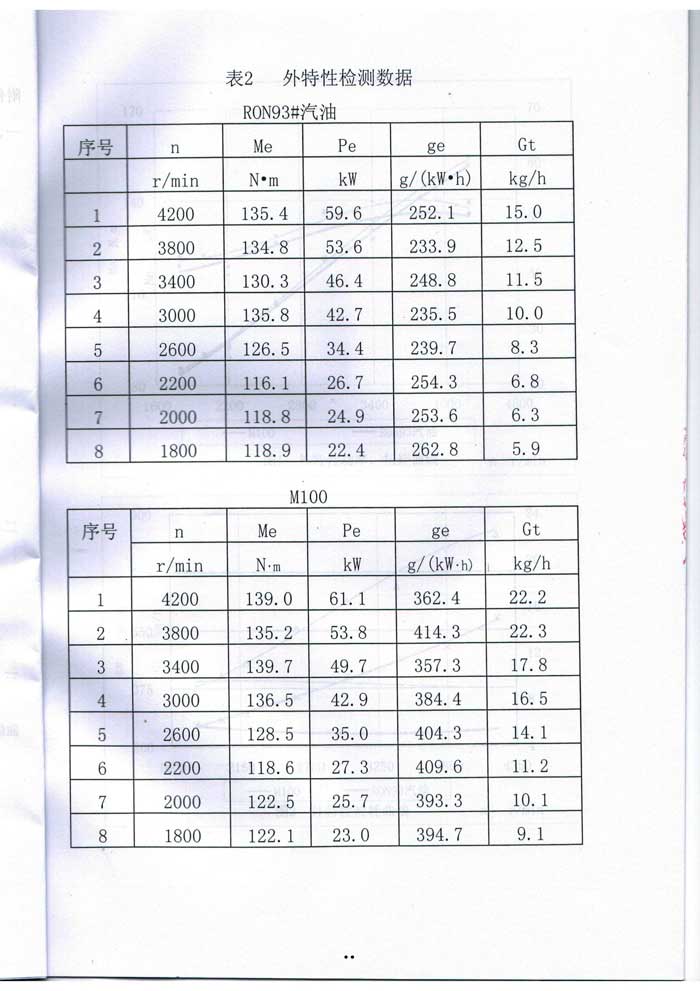 表2 外特性检测数据
RON93#汽油
序号 n Me Pe ge Gt
r/min N•m kW g/(kW•h) kg/h
1 4200 135.4 59.6 252.1 15.0
2 3800 134.8 53.6 233.9 12.5
3 3400 130.3 46.4 248.8 11.5
4 3000 135.8 42.7 235.5 10.0
5 2600 126.5 34.4 239.7 8.3
6 2200 116.1 26.7 254.3 6.8
7 2000 118.8 24.9 253.6 6.3
8 1800 118.9 22.4 262.8 5.9
M100
序号 n Me Pe ge Gt
r/min N·m kW g/(kW·h) kg/h
1 4200 139.0 61.1 362.4 22.2
2 3800 135.2 53.8 414.3 22.3
3 3400 139.7 49.7 357.3 17.8
4 3000 136.5 42.9 384.4 16.5
5 2600 128.5 35.0 404.3 14.1
6 2200 118.6 27.3 409.6 11.2
7 2000 122.5 25.7 393.3 10.1
8 1800 122.1 23.0 394.7 9.1